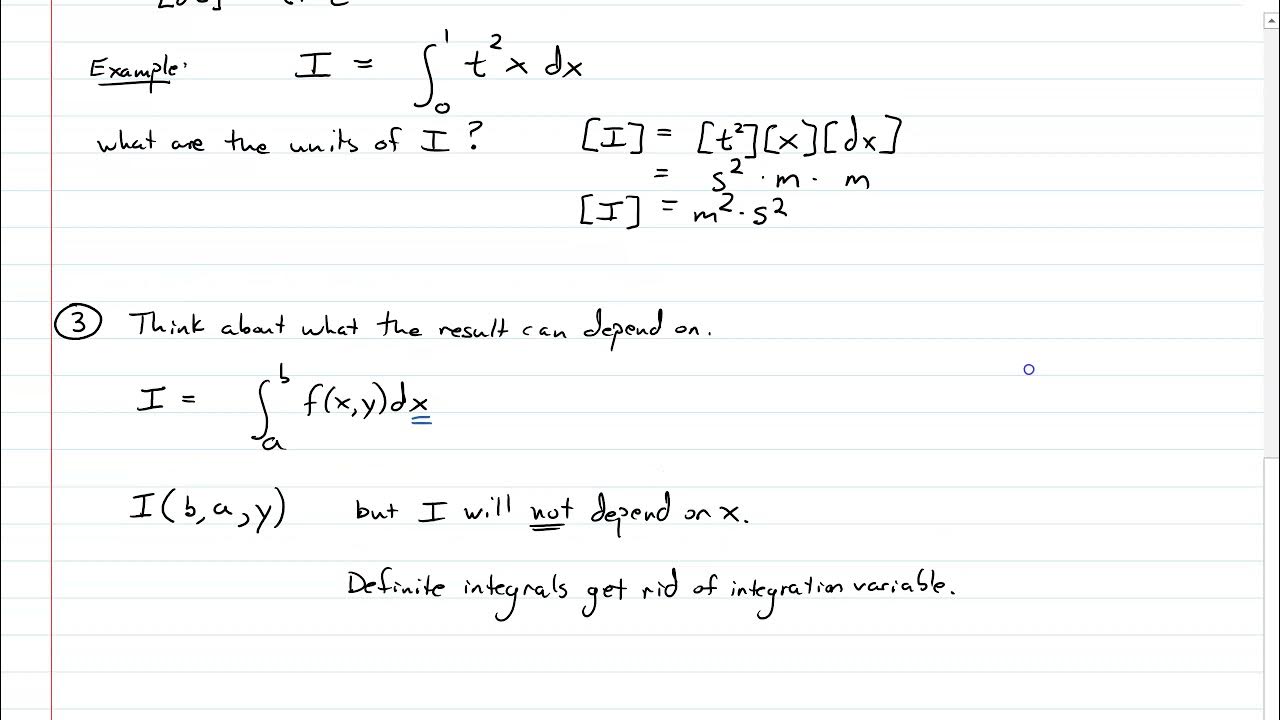 Example: I = ∫₀¹ t² x dx
what are the units of I ? [I] = [t²][x][dx]
= s² · m · m
[I] = m² · s²
③ Think about what the result can depend on.
I = ∫ₐᵇ f(x,y)dx
I(b,a,y) but I will not depend on x.
Definite integrals get rid of integration variable.